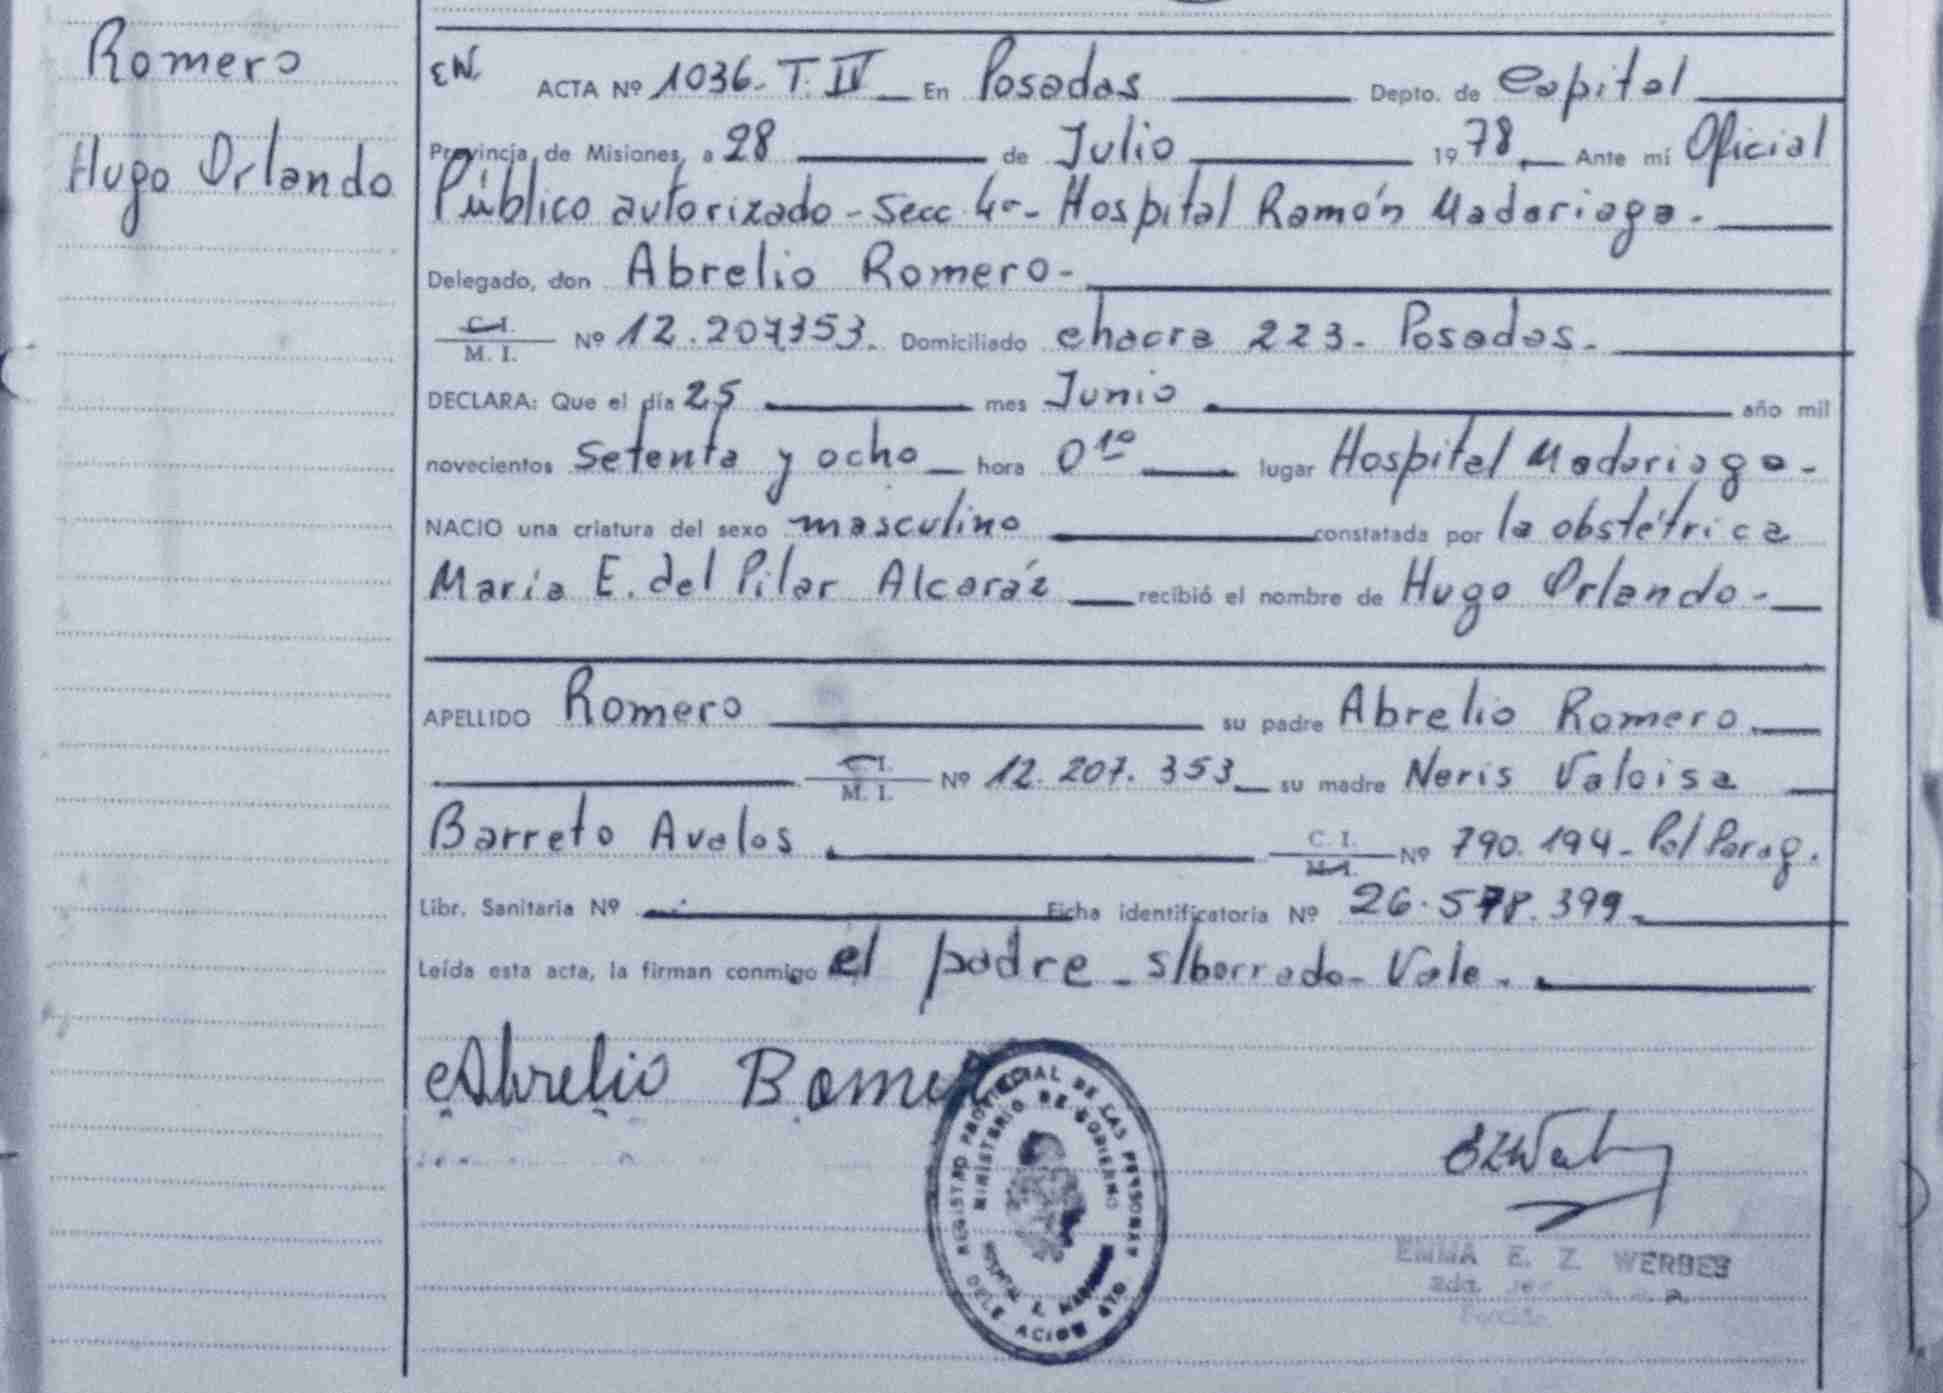 Romero
Hugo Orlando
EN. ACTA Nº 1036. T. IV En Posadas Depto. de Capital
Provincia de Misiones, a 28 de Julio 1978. Ante mí Oficial
Público autorizado - Secc 4ª - Hospital Ramón Madariaga.
Delegado, don Abrelio Romero -
C. I.
M. I. Nº 12.207353. Domiciliado chacra 223 - Posadas -
DECLARA: Que el día 25 mes Junio año mil
novecientos setenta y ocho hora 01º lugar Hospital Madariaga -
NACIO una criatura del sexo masculino constatada por la obstétrica
María E. del Pilar Alcaráz recibió el nombre de Hugo Orlando -
APELLIDO Romero su padre Abrelio Romero
C. I.
M. I. Nº 12. 207. 353 su madre Neris Valoisa
Barreto Avalos C. I.
M. I. Nº 790. 194 - Pol Parag.
Libr. Sanitaria Nº Ficha identificatoria Nº 26. 578. 399
Leída esta acta, la firman conmigo el padre - s/borrado - Vale -
Abrelio Romero
REGISTRO PROVINCIAL DE LAS PERSONAS
MINISTERIO DE GOBIERNO
HOSPITAL R. MADARIAGA
DELEGACION 4TO
EMMA E. Z. WERBES